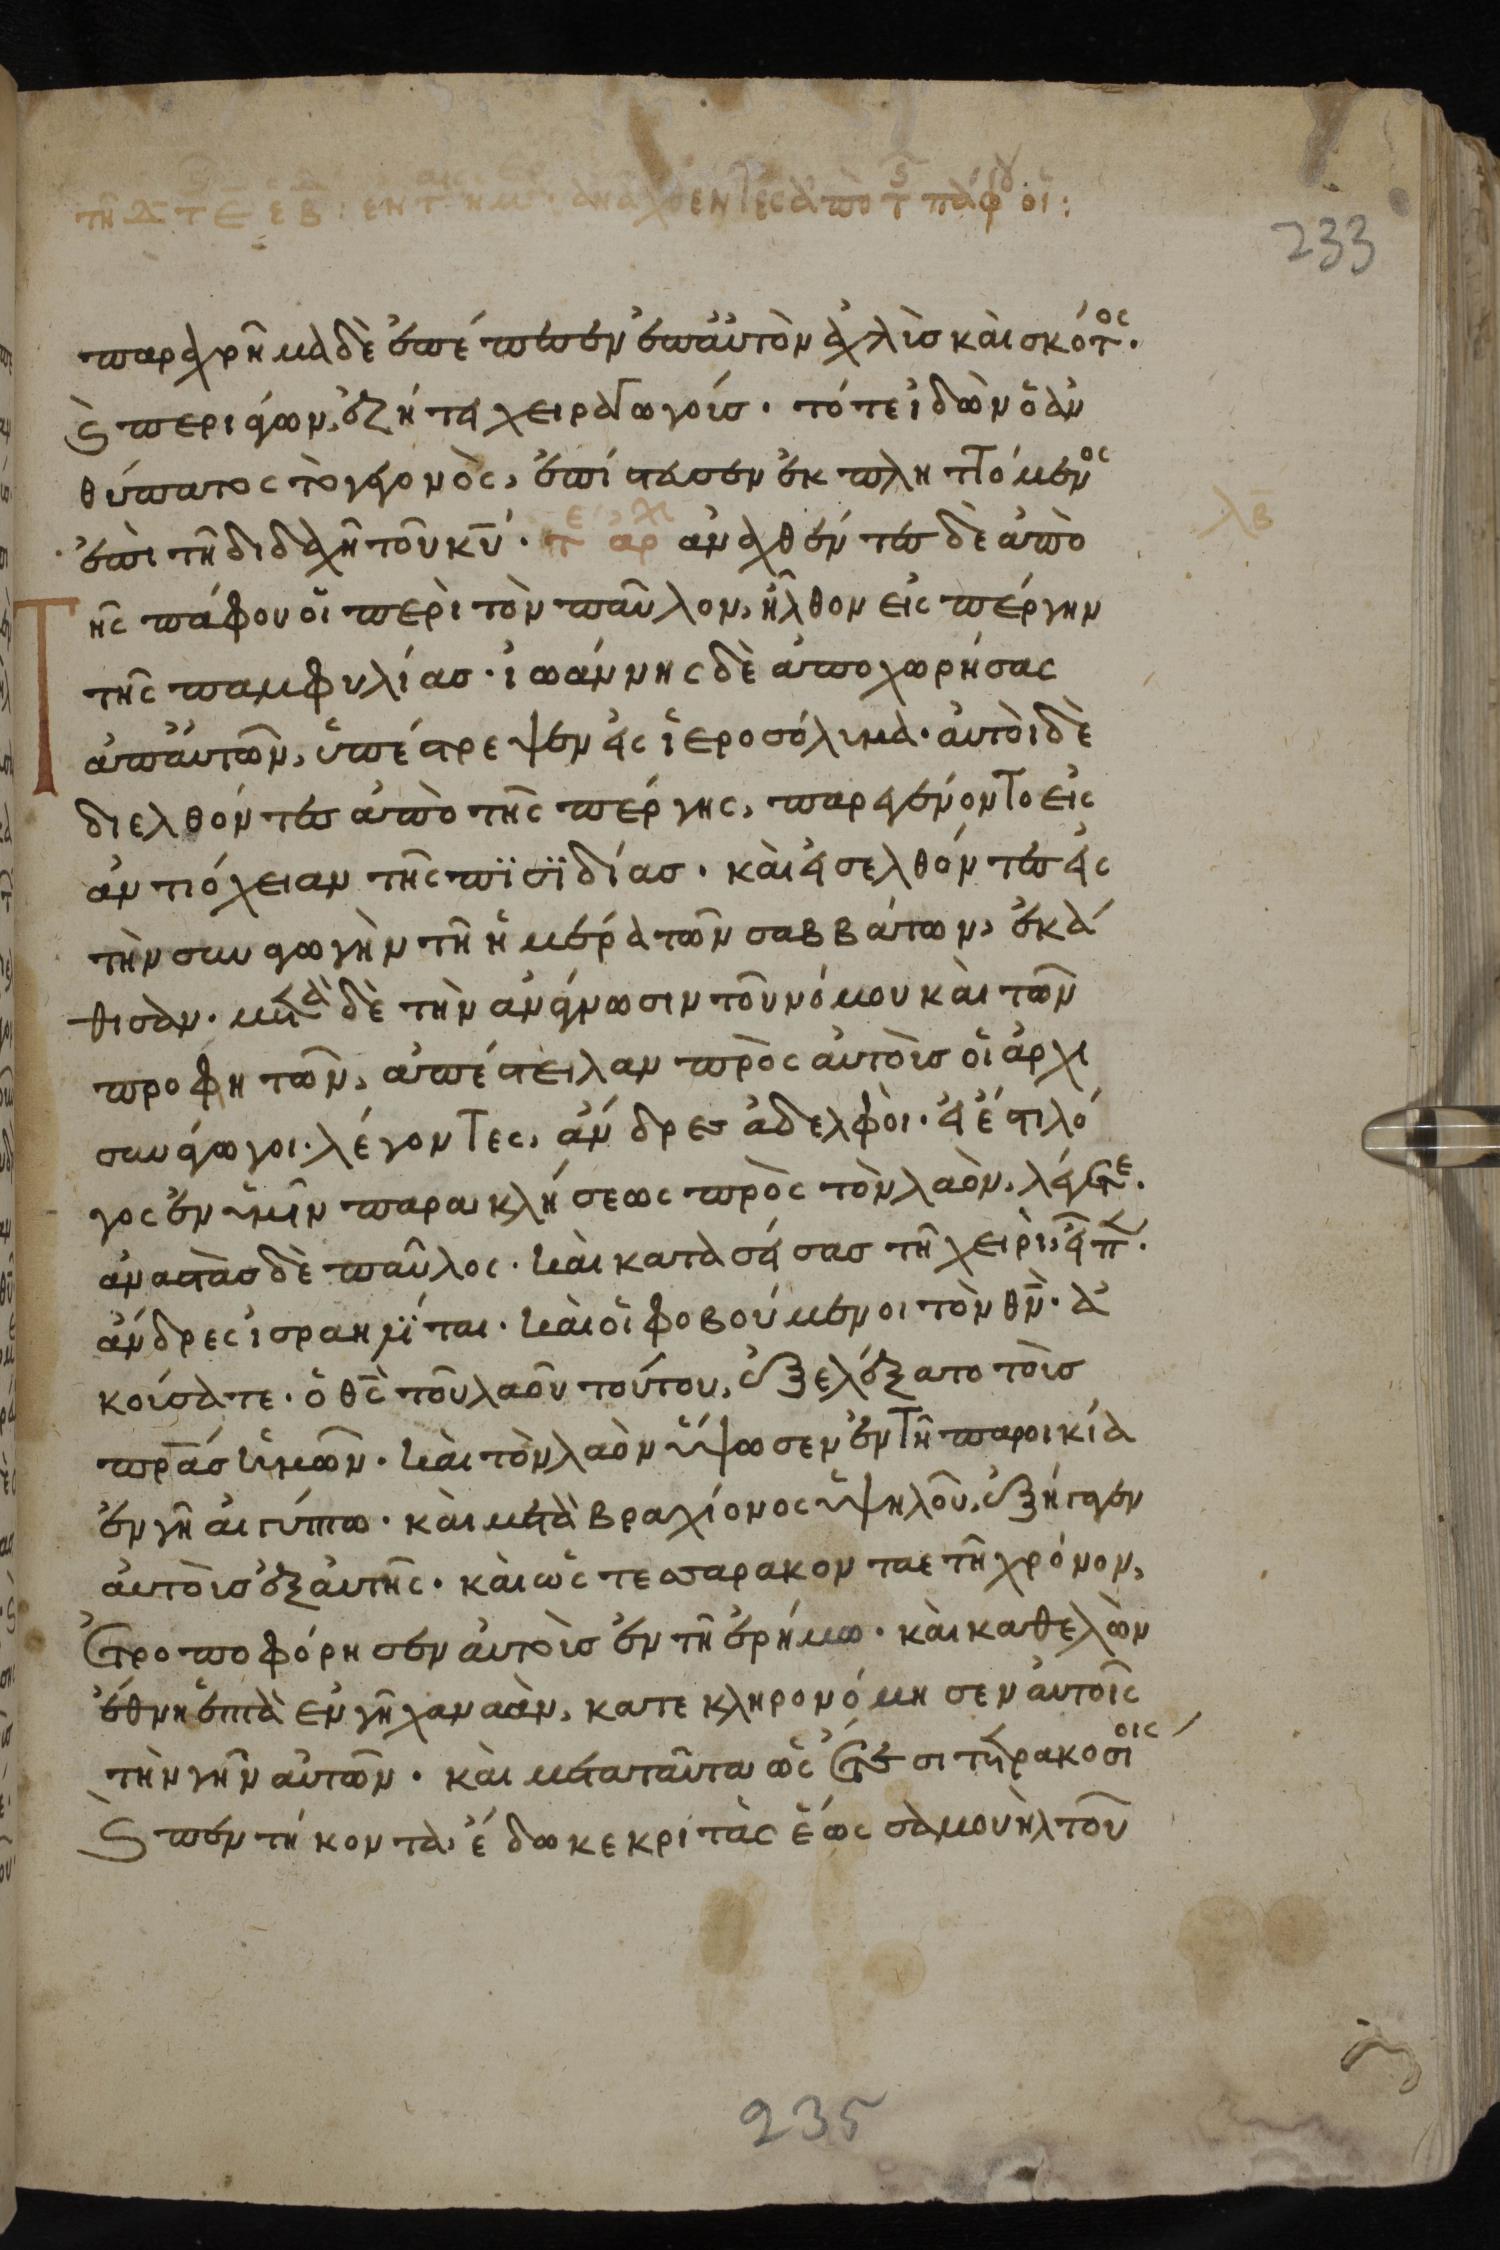 233
παραχρῆμα δὲ ἐπέπεσεν ἐπ' αὐτὸν ἀχλὺς καὶ σκότος·
καὶ περιάγων, ἐζήτει χειραγωγούς· τότε ἰδὼν ὁ ἀν
θύπατος τὸ γεγονὸς, ἐπίστευσεν ἐκπληττόμενος
ἐπὶ τῆ διδαχῆ τοῦ κυ̅· τε αρχ ἀναχθέντες δὲ ἀπὸ
Τῆς πάφου οἱ περὶ τὸν παῦλον, ἦλθον εἰς πέργην
τῆς παμφυλίας· ἰωάννης δὲ ἀποχωρήσας
ἀπ' αὐτῶν, ὑπέστρεψεν εἰς ἱεροσόλυμα· αὐτοὶ δὲ
διελθόντες ἀπὸ τῆς πέργης, παρεγένοντο εἰς
ἀντιόχειαν τῆς πϊσϊδίας· καὶ εἰσελθόντες εἰς
τὴν συναγωγὴν τῆ ἡμέρα τῶν σαββάτων, ἐκά
θισαν· μετὰ δὲ τὴν ἀνάγνωσιν τοῦ νόμου καὶ τῶν
προφητῶν, ἀπέστειλαν πρὸς αὐτοὺς οἱ ἀρχι
συνάγωγοι· λέγοντες, ἄνδρες ἀδελφοὶ· εἰ ἔστι λό
γος ἐν ὑμῖν παρακλήσεως πρὸς τὸν λαὸν, λέγετε·
ἀναστὰς δὲ παῦλος· καὶ κατασείσας τῆ χειρὶ, εἶπ·
ἄνδρες ἰσραηλϊται· καὶ οἱ φοβούμενοι τὸν θν̅· ἀ
κούσατε· ὁ θς̅ τοῦ λαοῦ τούτου, ἐξελέξατο τοὺς
πρας̅ ἡμῶν· καὶ τὸν λαὸν ὕψωσεν ἐν τῆ παροικία
ἐν γῆ αἰγύπτω· καὶ μετὰ βραχίονος ὑψηλοῦ, ἐξήγαγεν
αὐτοὺς ἐξ αὐτῆς· καὶ ὡς τεσσαρακονταετῆ χρόνον,
ἐτροποφόρησεν αὐτοὺς ἐν τῆ ἐρήμω· καὶ καθελὼν
ἔθνη ἑπτὰ ἐν γῆ χαναὰν, κατεκληρονόμησεν αὐτοῖς
τὴν γῆν αὐτῶν· καὶ μετὰ ταῦτα ὡς ἔτεσι τετρακοσίοις
καὶ πεντήκοντα, ἔδωκε κριτὰς ἕως σαμουὴλ τοῦ
235